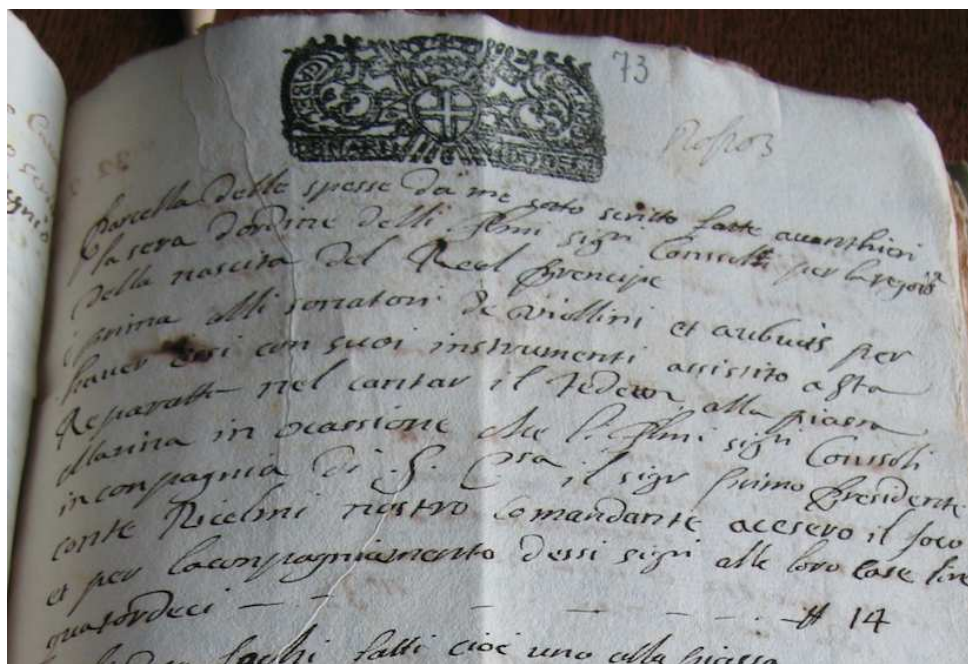 73
Parcella delle spesse da me sotto scritto fatte avanthieri
la sera d'ordine delli Illmi sigri Consolli per la
della nascita del Reel Prencipe
prima alli sonatori de viollini et aubuis per
haver essi con suoi instrumenti assistito a Sta
Reparatta nel cantar il Tedeum alla piassa
Marina in ocassione che l'Illmi sigri Consoli
in conpagnia di S. il sigr primo Presidente
conte Ricelmi nostro Comandante acesero il foco
et per laconpagniamento dessi sigri alle loro case lire
quatordeci — — — — — — 14
fochi fatti cioe uno alla piassa